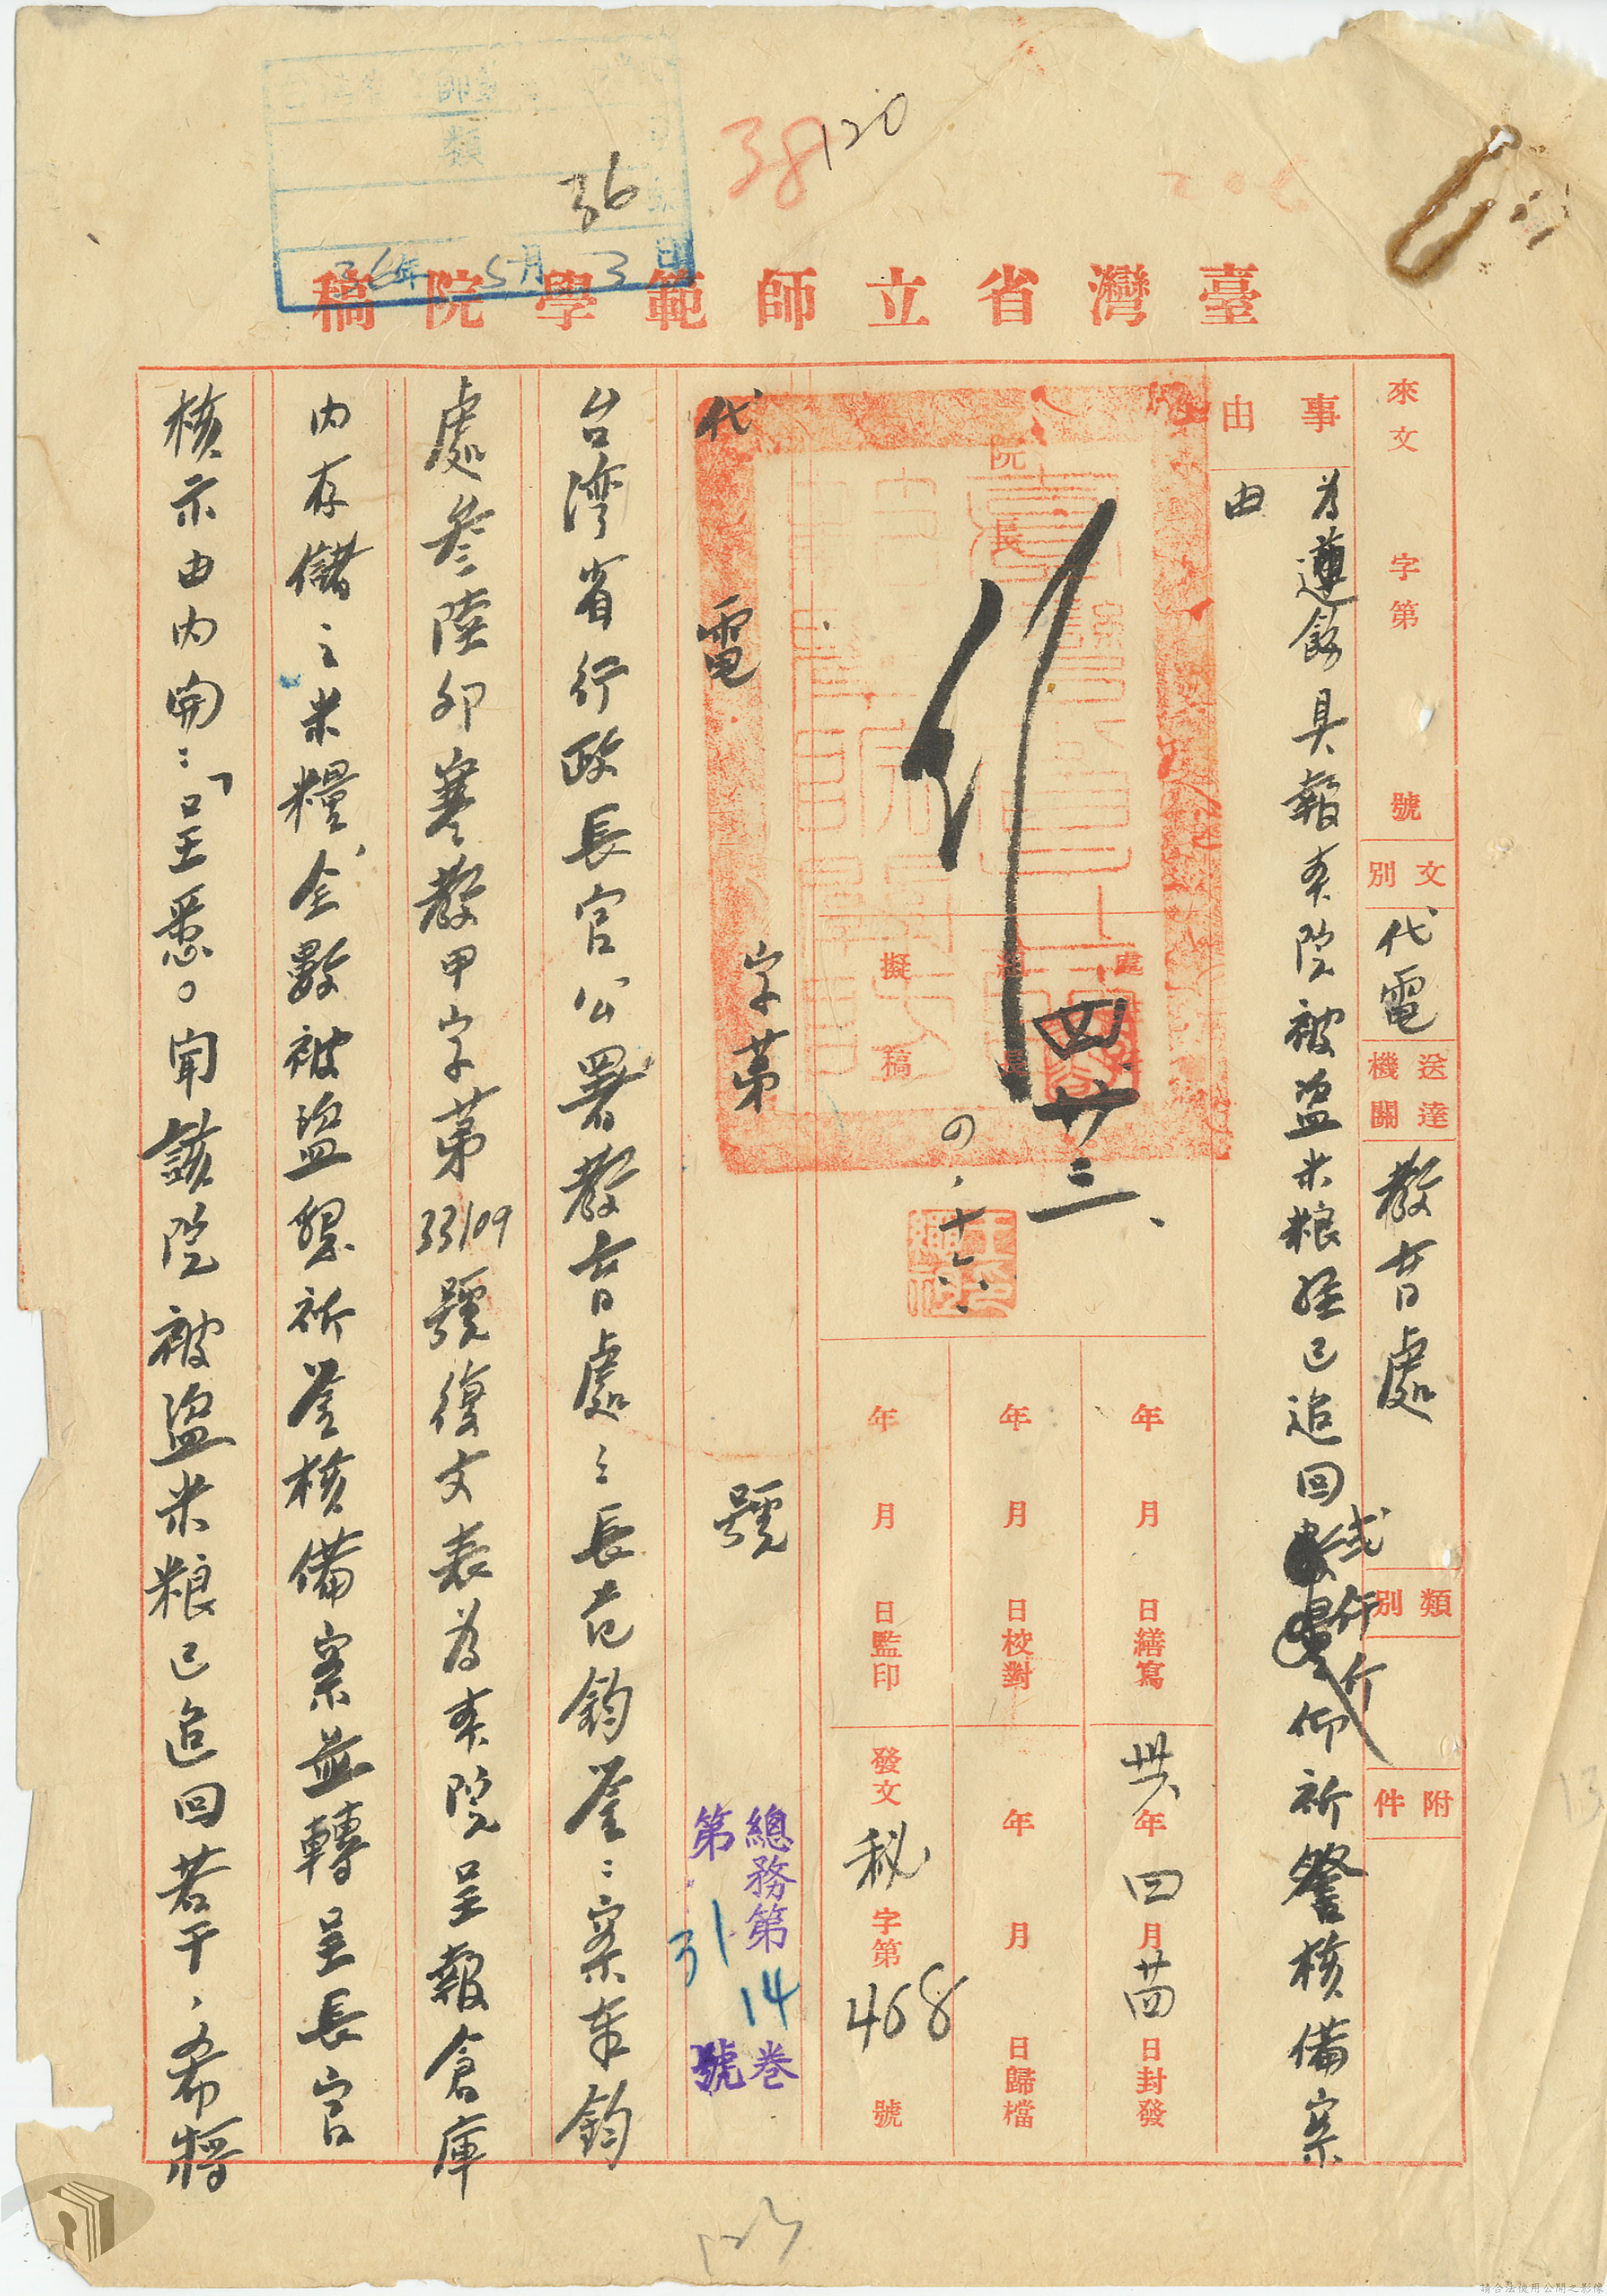 38
120
36
類
36年5月3日
臺灣省立師範學院稿
來文 字第 號
文別 代電
送達機關 教育處
類別
附件
事由
為遵飭具報本院被盜米粮経已追回弍仟斤仰祈詧核備案
由
院長
行
四廿三
處長
擬稿
四、十六
年 月 日繕寫
年 月 日校對
年 月 日監印
卅六年四月廿四日封發
年 月 日歸檔
發文 秘字第468號
代電 字第 號
總務第14卷
第31號
台湾省行政長官公署教育處之長范鈞鑒：案奉鈞
處叁陸卯寒教甲字第33109號復文表為本院呈報倉庫
内存儲之米糧，全數被盜懇祈鑒核備案並轉呈長官
核示由内開：「呈悉。聞該院被盜米粮已追回若干，希將
123
13
請合法使用公開之影像